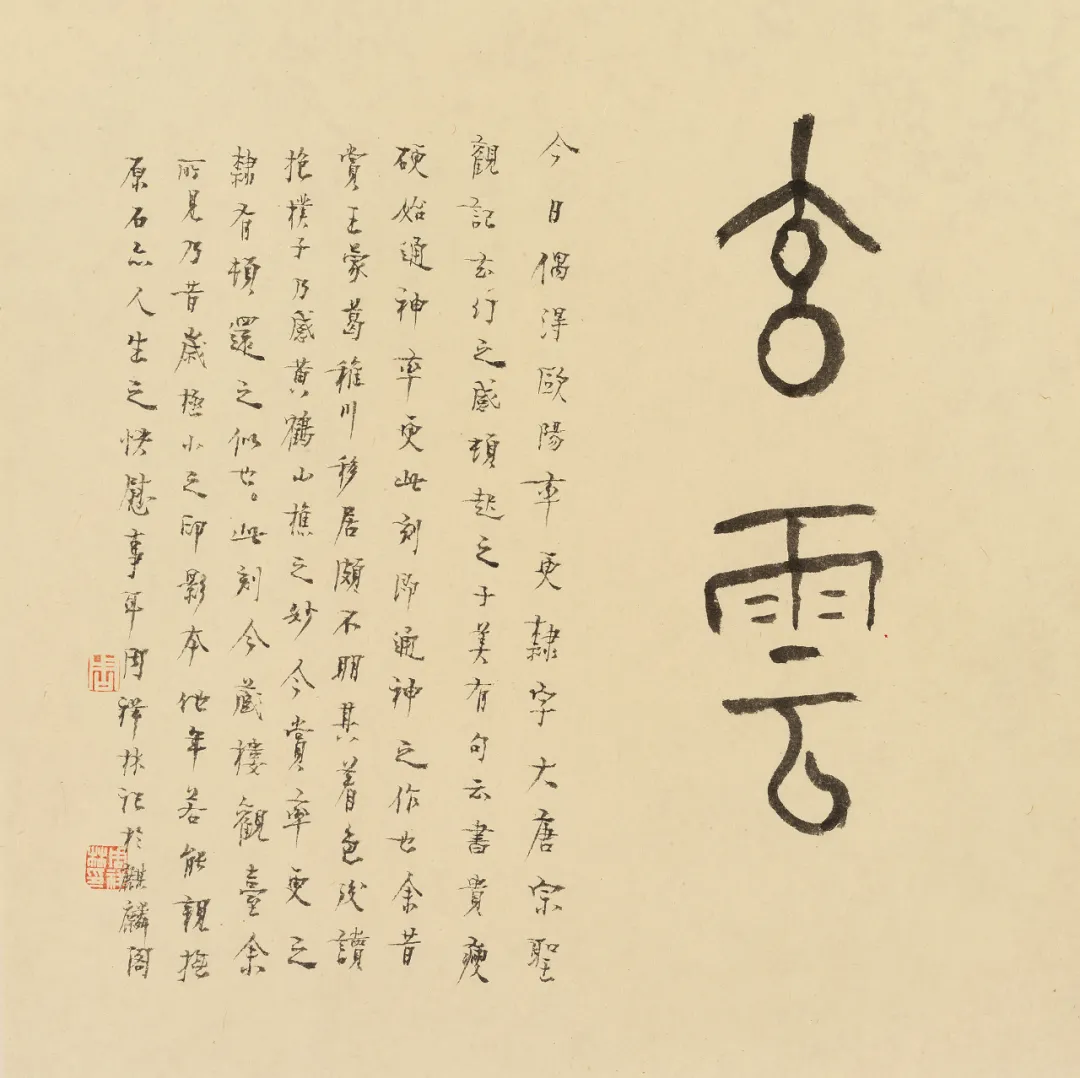 玄雲
今日偶得歐陽率更隸字大唐宗聖
觀記玄行之感頓起之子美有句云書貴瘦
硬始通神率更此刻即通神之作也余昔
賞王蒙葛稚川移居頗不明其着色後讀
抱樸子乃感黃鶴山樵之妙今賞率更之
隸有頓還之似也。此刻今藏樓觀臺余
所見乃昔歲極小之印影本他年若能親撫
原石亦人生之快慰事耳周祥林記於麒麟閣